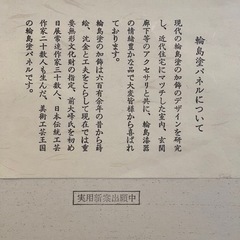 輪島塗パネルについて
現代の輪島塗の加飾のデザインを研究
し、近代住宅にマツチした室内、玄関
廊下等のアクセサリと共に、輪島漆器
の情緒豊かな品で大変皆様から喜ばれ
ております。
輪島塗の加飾は六百有余年の昔から蒔
絵、沈金と工夫をこらして現在では重
要無形文化財の指定、前大峰氏を初め
日展常連作家三十数人、日本伝統工芸
作家二十数人も生んだ、美術工芸王国
輪島塗です。
実用新案出願中